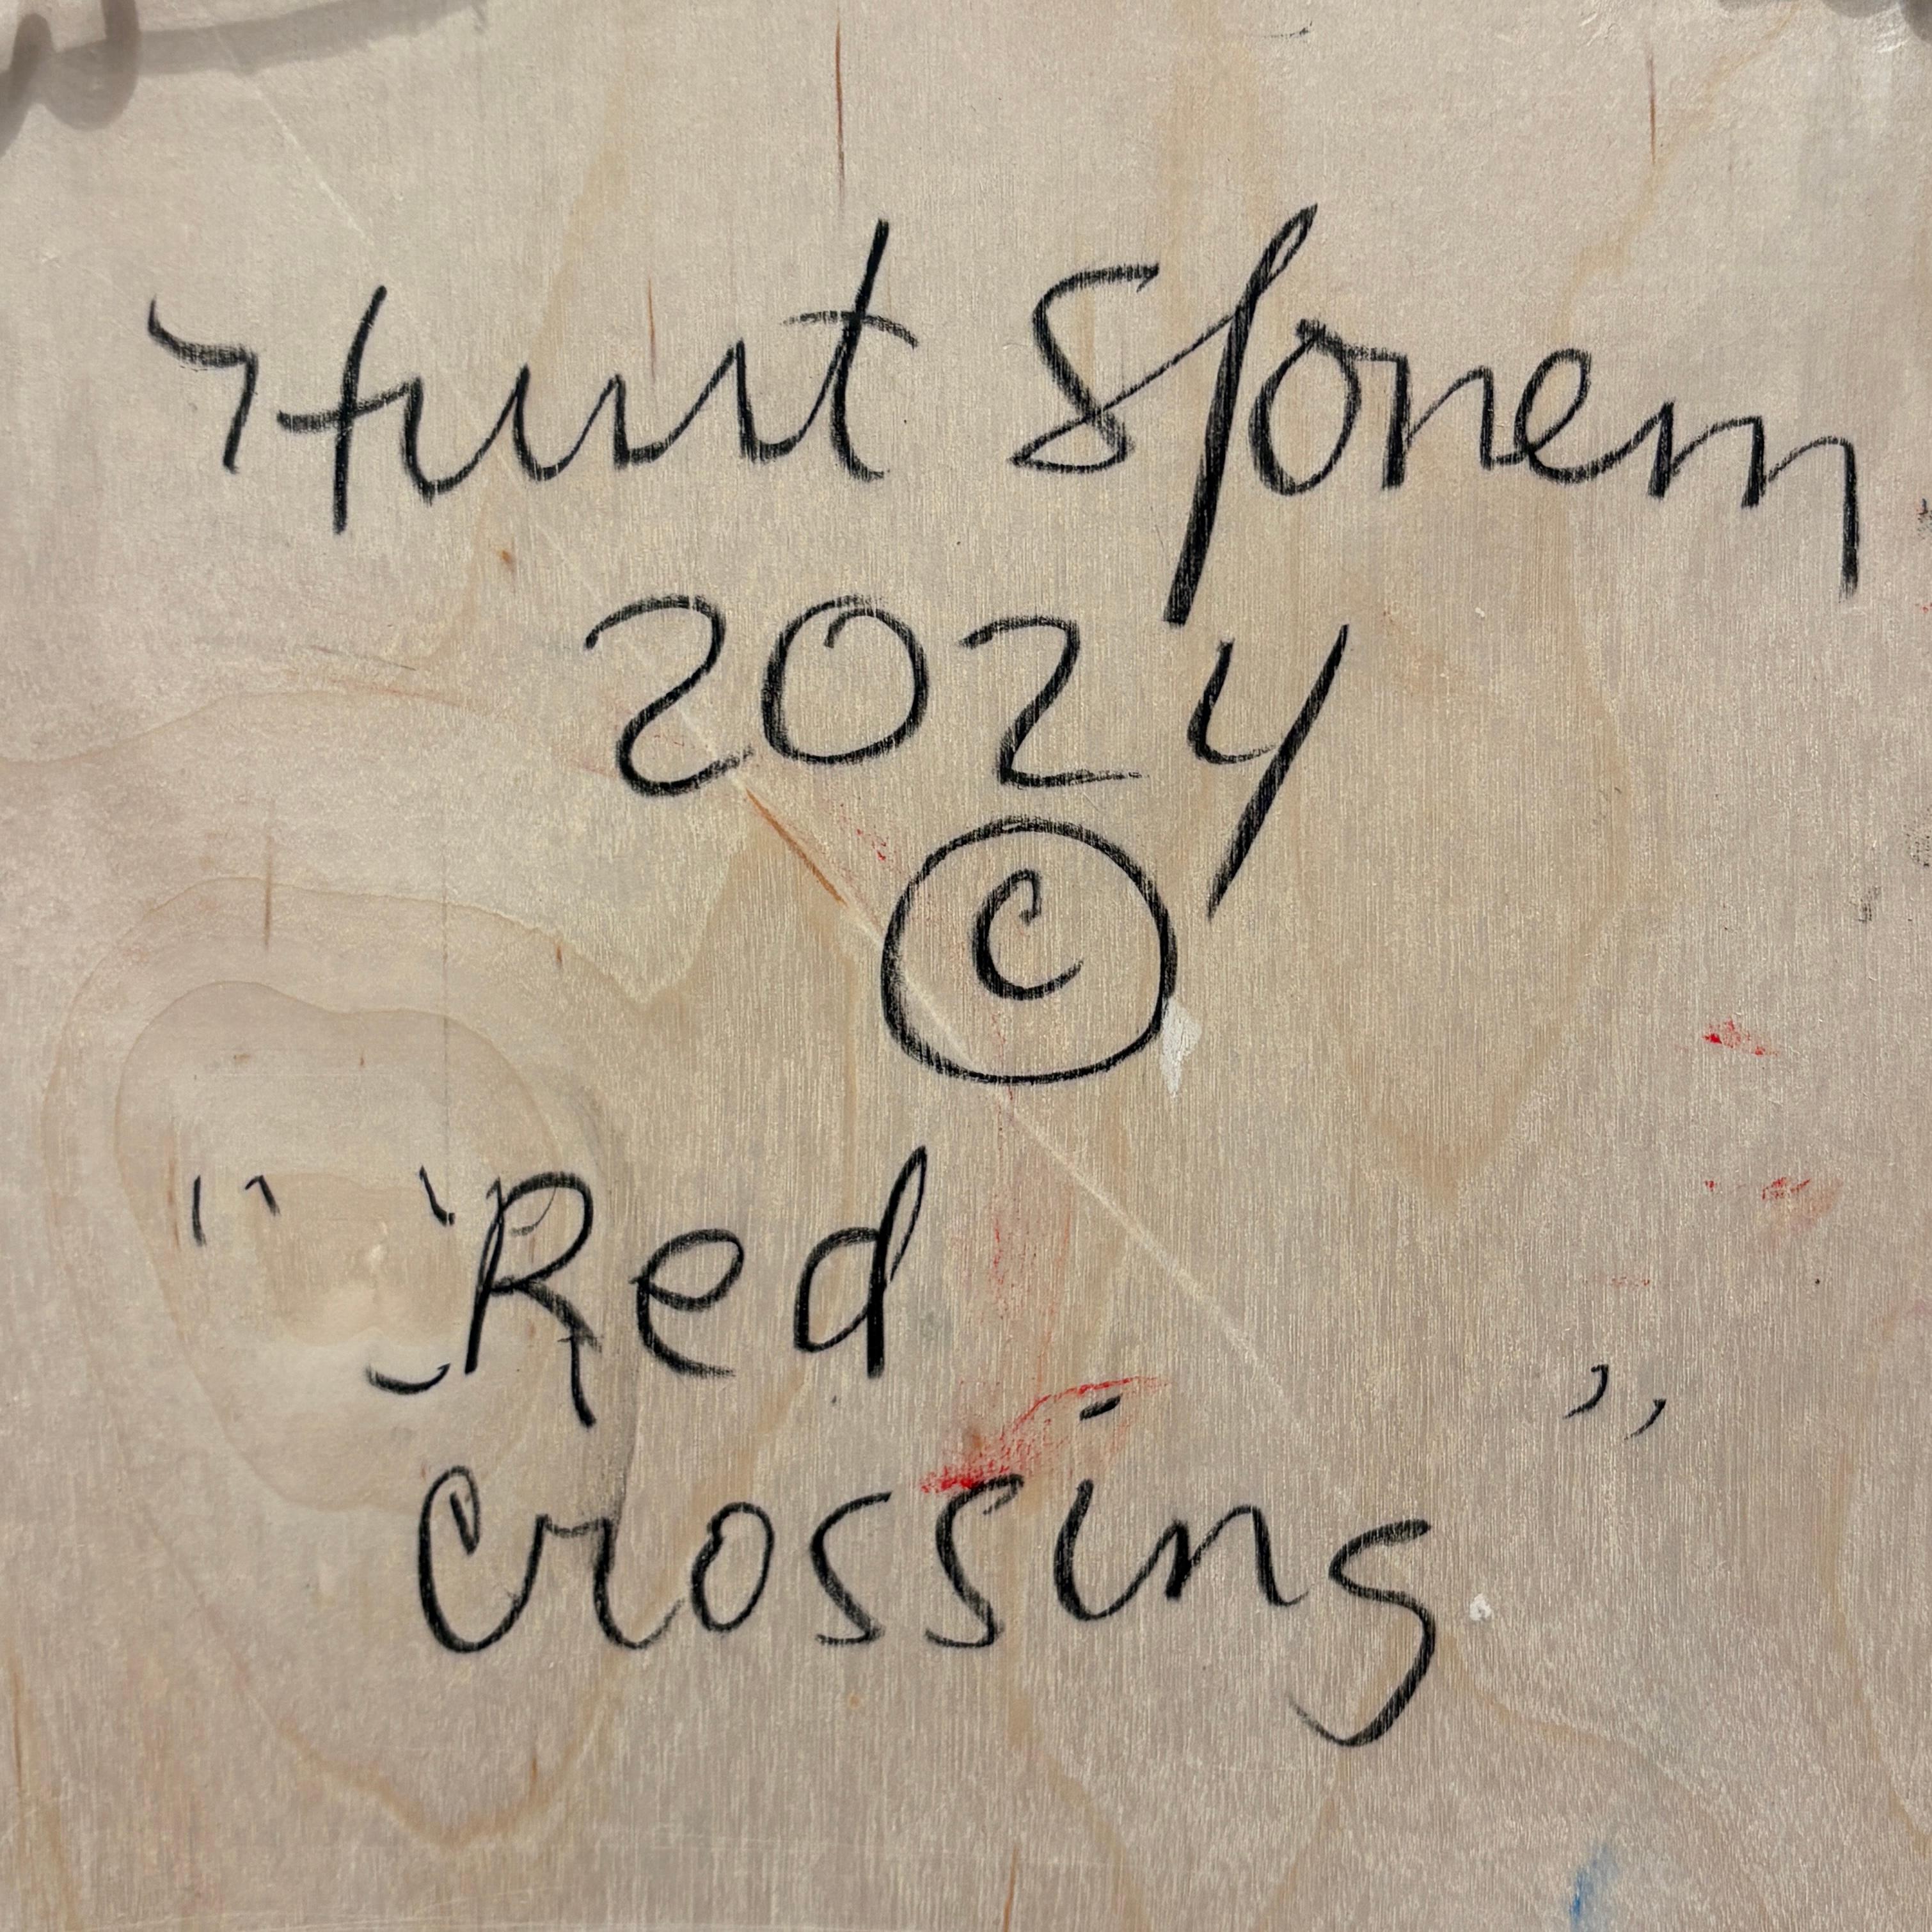 Hunt Slonem
2024
©
"Red
Crossing"